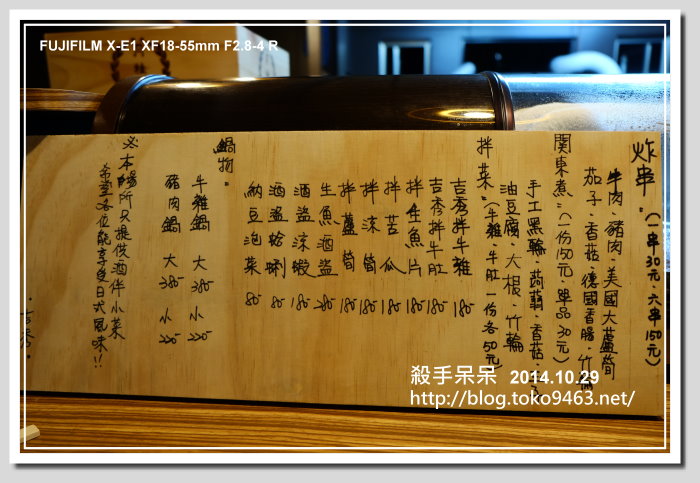 FUJIFILM X-E1 XF18-55mm F2.8-4 R
炸串。(一串30元、六串150元)
牛肉、豬肉、美國大蘆筍
茄子、香菇、德國香腸、竹輪
関東煮。(一份150元、單品30元)
手工黑輪、蒟蒻、香菇、
油豆腐、大根、竹輪
拌菜。(牛雜、牛肚一份各50元)
吉秀拌牛雜 180
吉秀拌牛肚 180
拌生魚片 180
拌苦瓜 180
拌涼筍 180
拌蘆筍 180
生魚酒盜 280
酒盜涼蝦 180
酒盜蛤蜊 80
納豆泡菜 80
鍋物。
牛雜鍋 大380 小220
豬肉鍋 大380 小220
※本場所只提供酒伴小菜
希望各位能享受日式風味!!
殺手呆呆 2014.10.29
http://blog.toko9463.net/